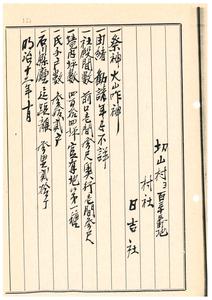 切山村ヨ百三十番地
村社
日吉社
一祭神 大山咋神
由緒 勧請年月不詳
一社殿間数 前口壱間参尺奥行壱間参尺
一境内坪数 四百拾四坪 官有地第一種
一氏子戸数 参拾弐戸
一石川県庁迄距離 参里弐拾丁
明治十一年十月